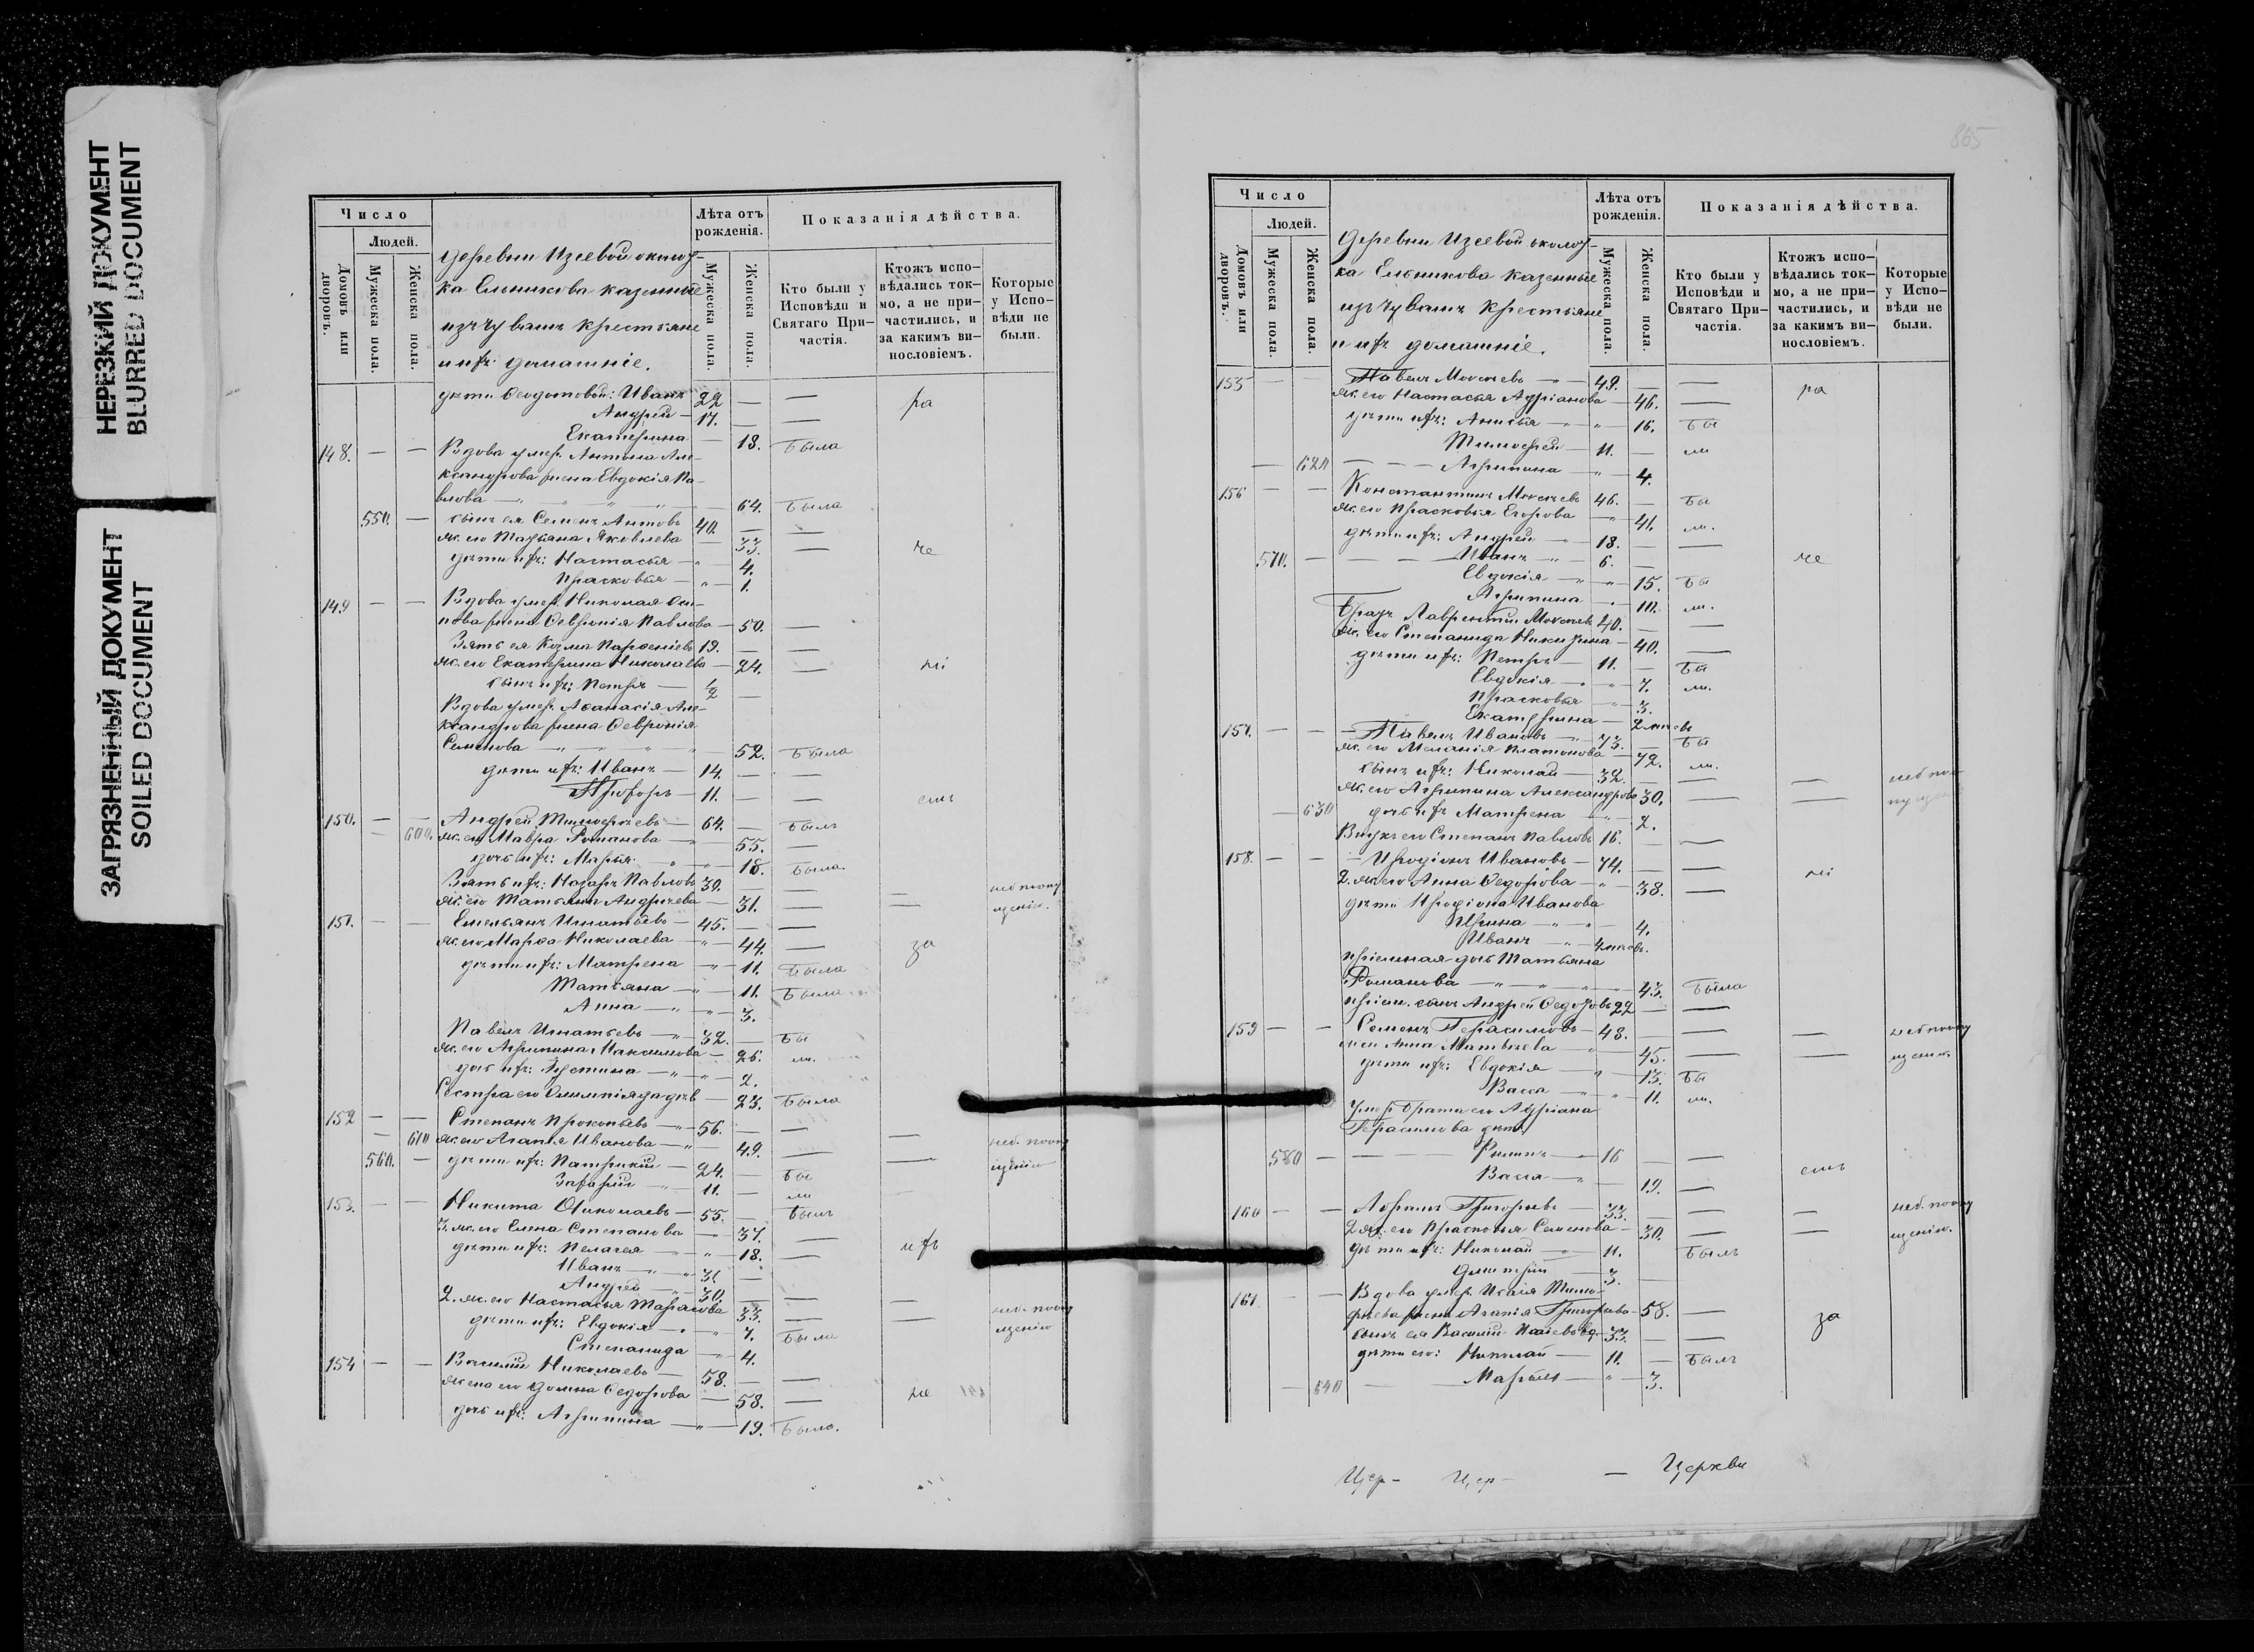 НЕРЕЗКИЙ ДОКУМЕНТ
BLURRED DOCUMENT
ЗАГРЯЗНЕННЫЙ ДОКУМЕНТ
SOILED DOCUMENT
Число
Людей.
Домовъ или дворовъ.
Мужеска пола.
Женска пола.
деревни Изеевой околод-
ка Ельникова казенные
изъ чувашъ крестьяне
и ихъ домашніе.
Лѣта отъ рожденія.
Мужеска пола.
Женска пола.
Показанія дѣйства.
Кто были у Исповѣди и Святаго При-частія.
Ктожъ испо-вѣдались ток-мо, а не при-частились, и за какимъ ви-нословіемъ.
Которые у Испо-вѣди не были.
дѣти Ѳеодотовой: Иванъ 22 — — ра
Андрей — 17. — —
Екатерина — 13. была
148. — — Вдова умер. Антона Але-
ксандрова жена Евдокія Па-
влова — 64. была
550. — сынъ ея Семенъ Антовъ 40. — —
ж. его Татьяна Яковлева — 33. — че
дѣти ихъ: Настасья — 4.
Прасковья — 1.
149 — — Вдова умер. Николая Оси-
пова жена Ѳевронія Павлова — 50. —
Зять ея Козма Парѳеніевъ 19. — —
ж. его Екатерина Николаева — 24. — ні
сынъ ихъ: Петръ — 1/2 —
Вдова умер. Аѳанасія Але-
ксандрова жена Ѳевронія
Семенова — 52. была
дѣти ихъ: Иванъ — 14. — —
Прохоръ — 11. — — емъ
150. — — Андрей Тимоѳеевъ — 64. — былъ
— 600. ж. его Мавра Романова — 55. —
дочь ихъ: Марья — 18. была.
Зять ихъ: Назаръ Павловъ 39. — — — неб по опу
ж. его Татьяна Андреева — 31. — — щенію.
151. — — Емельянъ Игнатьевъ — 45. — —
ж. его Марѳа Николаева — 44. — за
дѣти ихъ: Матрена — 11. была
Татьяна — 11. была
Анна — 3.
Павелъ Игнатьевъ — 32. — бы
ж. его Агрипина Максимова — 26. ли.
дочь ихъ: Устинa — 2.
Сестра его Олимпіада дѣв — 23. была
152 — — Степанъ Прокопьевъ — 56. — —
— 610 ж. его Агапія Иванова — 49. — — неб. по опу
560. — дѣти ихъ: Патрикій — 24. — бы — щенію
Захарій — 11. — ли
153. — — Никита Николаевъ — 55. — былъ
3. ж. его Елена Степанова — 37. — ихъ
дѣти ихъ: Пелагея — 18. —
Иванъ — 31. —
Андрей — 30. — —
2. ж. его Настасья Тарасова 33. — — неб. по опу
дѣти ихъ: Евдокія — 7. была щенію
Степанида — 4.
154 — — Василій Николаевъ — 58. — —
жена его Домна Ѳедорова — 58. — не
дочь ихъ: Агрипина — 19. была.
865
Число
Людей.
Домовъ или дворовъ.
Мужеска пола.
Женска пола.
деревни Изеевой околод-
ка Ельникова казенные
изъ чувашъ крестьяне
и ихъ домашніе.
Лѣта отъ рожденія.
Мужеска пола.
Женска пола.
Показанія дѣйства.
Кто были у Исповѣди и Святаго При-частія.
Ктожъ испо-вѣдались ток-мо, а не при-частились, и за какимъ ви-нословіемъ.
Которые у Испо-вѣди не были.
155 — — Павелъ Моисеевъ — 49. — — ра
ж. его Настасья Адріанова — 46. —
дѣти ихъ: Анисья — 16. бы
Тимоѳей — 11. — ли
— 620 — Агрипина — 4.
156 — — Константинъ Моисеевъ 46. — бы
ж. его Прасковья Егорова — 41. ли.
дѣти ихъ: Андрей — 18. — —
570. — Иванъ — 6. — че
Евдокія — 15. бы
Агрипина — 10. ли.
Братъ Лаврентій Моисеевъ 40. — —
ж. его Степанида Никитина — 40. —
дѣти ихъ: Петръ — 11. — бы
Евдокія — 7. ли.
Прасковья — 3.
Екатерина — 2 мѣсяц
157. — — Павелъ Ивановъ — 73. — бы
ж. его Меланія Платонова — 72. ли.
сынъ ихъ: Николай — 32. — — — неб по о
ж. его Агрипина Александрова 30. — — пущен
— 630 дочь ихъ Матрена — 2.
Внукъ его Степанъ Павловъ 16. — —
158. — — Иродіонъ Ивановъ — 74. — — ні
2. ж. его Анна Ѳедорова — 38. —
дѣти Иродіона Иванова
Ирина — 4.
Иванъ — 4 мѣсяц.
пріемная дочь Татьяна
Романова — 43. была
пріем. сынъ Андрей Ѳедоровъ 22 — —
159 — — Семенъ Герасимовъ — 48. — — неб по опу
Анна Матвѣева — 45. — — щенію.
дѣти ихъ: Евдокія — 13. бы
Васса — 11. ли.
Умер. брата его Адріана
Герасимова дѣти:
580 — Филипъ — 16 — —
Васса — 19. — емъ
160 — — Абрамъ Григорьевъ — 33. — — — неб. по опу
2 ж. его Прасковья Семенова — 30. — — щенію.
дѣти ихъ: Николай — 11. былъ
Дмитрій — 3. —
161. — — Вдова умер. Исаія Тимо-
ѳеева жена Агапія Григорьева — 58. —
сынъ ея Василій Исаевъ вд. 33. — — за
дѣти его: Николай — 11. — былъ
— 640 Марѳа — 3.
Цер- Цер- — Церкви